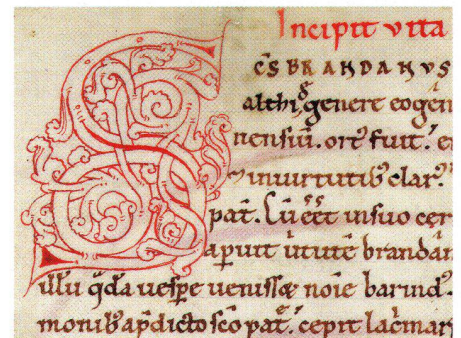 Incipit vita
SC̄S BRANDANVS
althi, genere eogen
nensiū. ort᷒ fuit.
in uirtutib᷒ clar᷒.
pat̄. Cū eēt in suo cer
brandan
illū q̄dā uespe uenisse noīe barind᷒
monib᷒ a p̄dicto scō pat̄. cepit lac̄mari